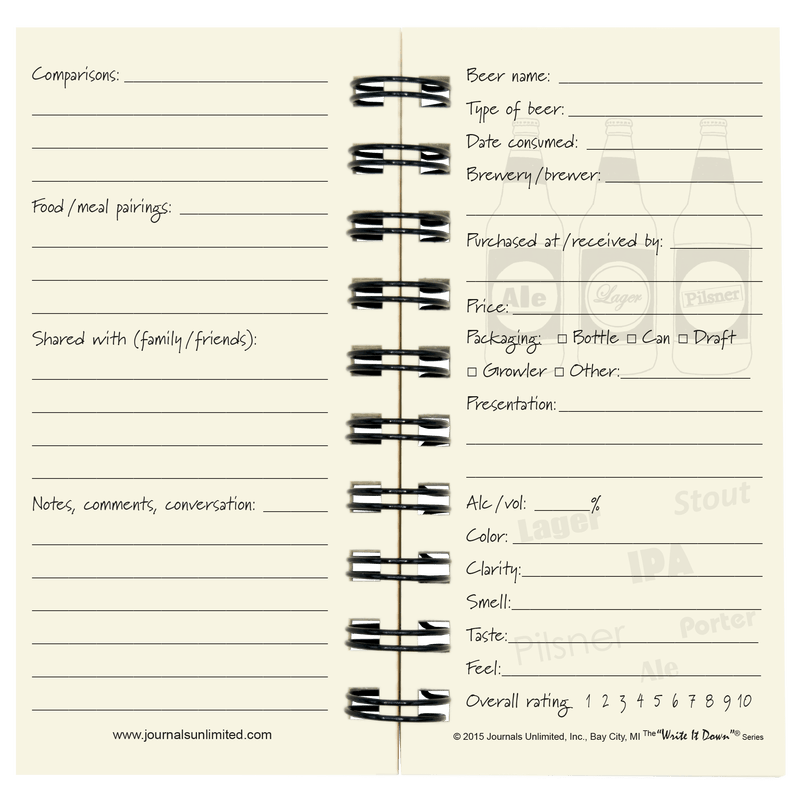 Comparisons:
Food/meal pairings:
Shared with (family/friends):
Notes, comments, conversation:
www.journalsunlimited.com
Beer name:
Type of beer:
Date consumed:
Brewery/brewer:
Purchased at/received by:
Ale Lager Pilsner
Price:
Packaging: □ Bottle □ Can □ Draft
□ Growler □ Other:
Presentation:
Stout
Alc/vol: %
Lager
Color:
IPA
Clarity:
Smell:
Porter
Taste:
Pilsner
Feel:
Ale
Overall rating 1 2 3 4 5 6 7 8 9 10
© 2015 Journals Unlimited, Inc., Bay City, MI The "Write It Down"® Series